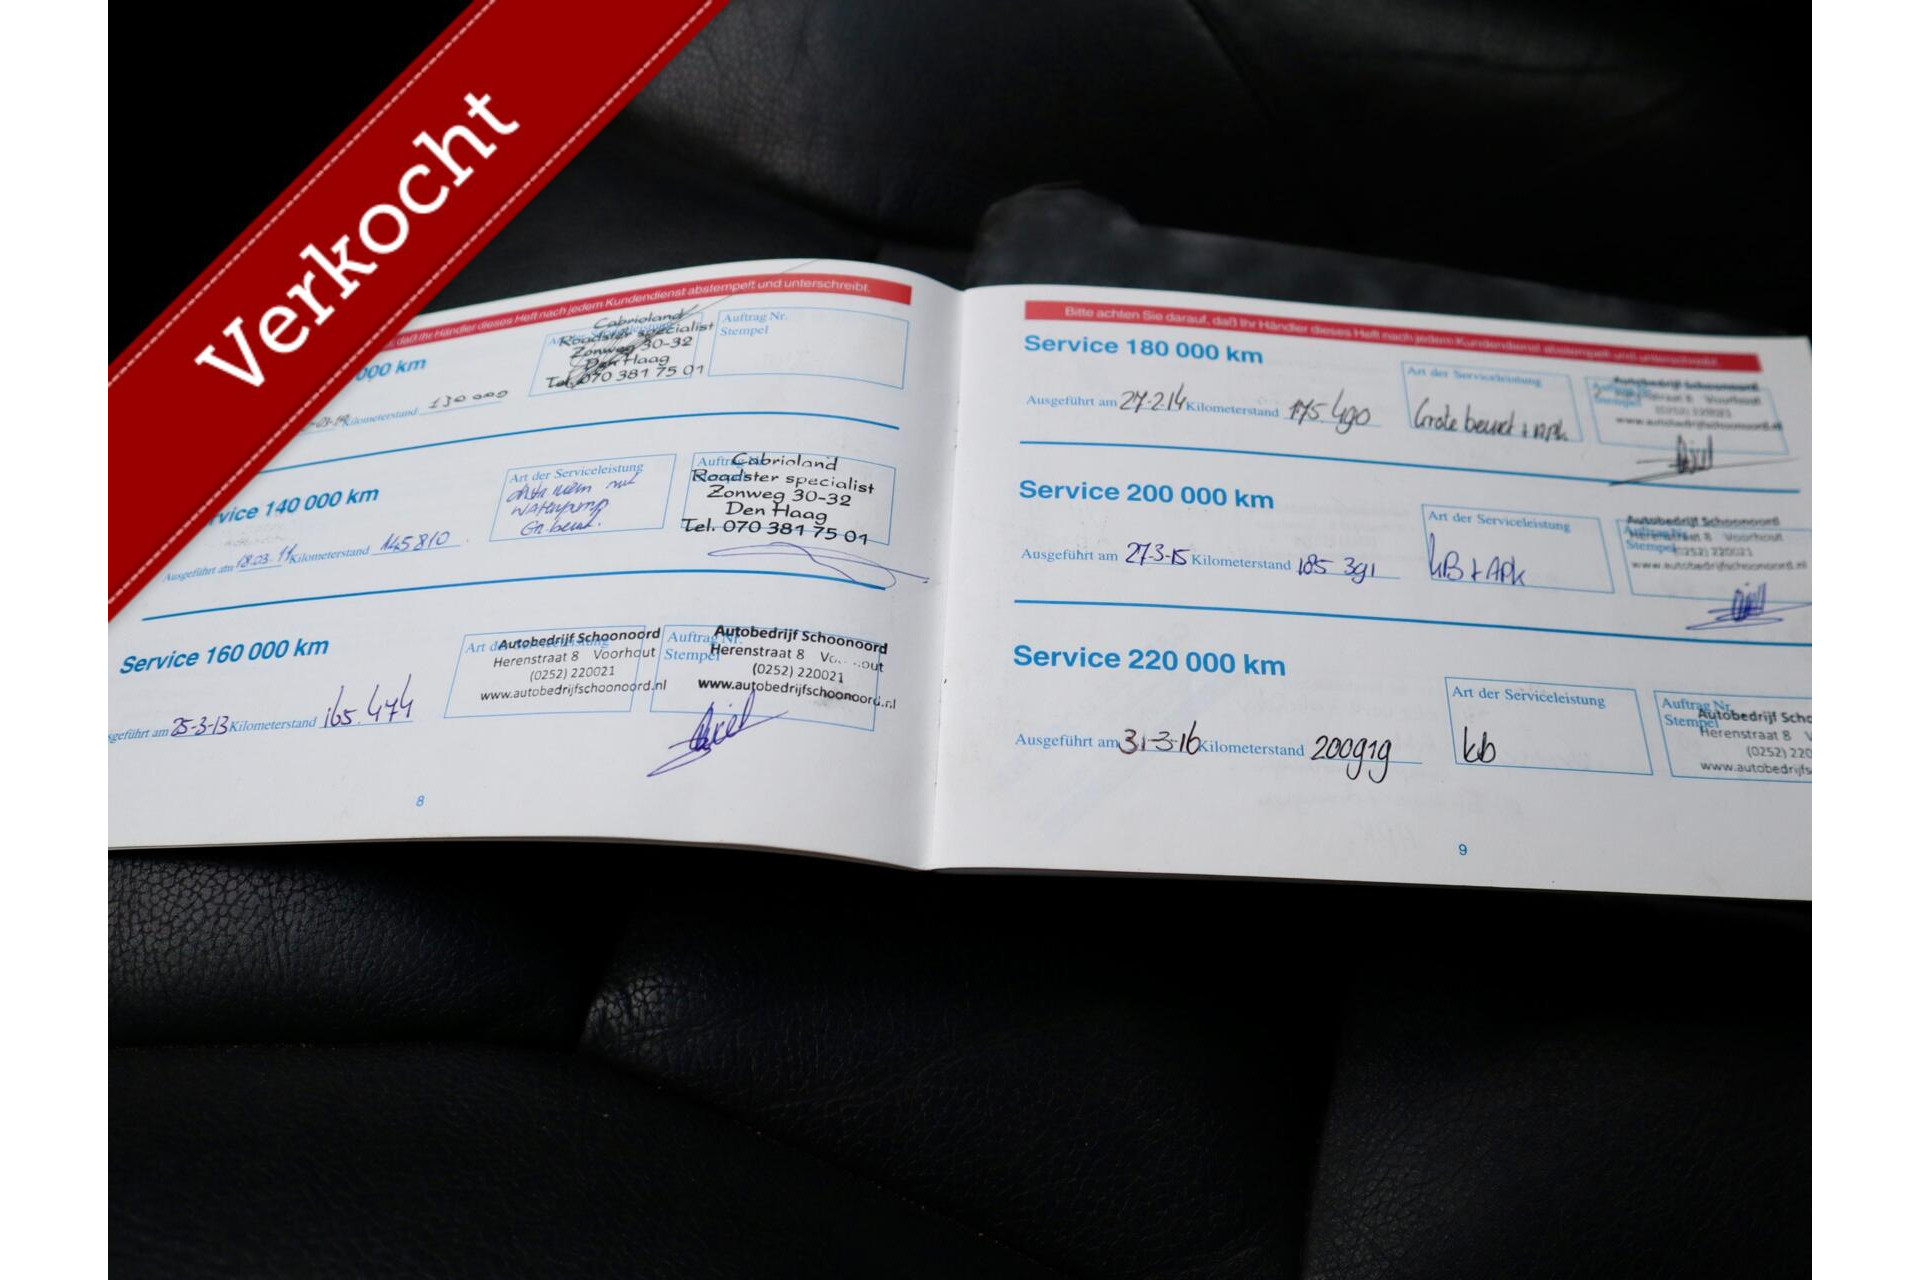 Verkocht
daß Ihr Händler dieses Heft nach jedem Kundendienst abstempelt und unterschreibt.
000 km
Cabrioland
Roadster specialist
Zonweg 30-32
Den Haag
Tel. 070 381 75 01
Auftrag Nr.
Stempel
Kilometerstand 130 000
Service 140 000 km
Art der Serviceleistung
Waterpomp
Cabrioland
Roadster specialist
Zonweg 30-32
Den Haag
Tel. 070 381 75 01
Ausgeführt am 18.03.11 Kilometerstand 145810
Service 160 000 km
Autobedrijf Schoonoord
Herenstraat 8 Voorhout
(0252) 220021
www.autobedrijfschoonoord.nl
Auftrag Nr.
Stempel
Autobedrijf Schoonoord
Herenstraat 8
(0252) 220021
www.autobedrijfschoonoord.nl
geführt am 25-3-13 Kilometerstand 165.474
8
Bitte achten Sie darauf, daß Ihr Händler dieses Heft nach jedem Kundendienst abstempelt und unterschreibt.
Service 180 000 km
Art der Serviceleistung
Grote beurt + apk
Autobedrijf Schoonoord
Stempel
(0252) 220021
www.autobedrijfschoonoord.nl
Ausgeführt am 27-2-14 Kilometerstand 175.490
Service 200 000 km
Art der Serviceleistung
KB + APK
Autobedrijf Schoonoord
Herenstraat 8 Voorhout
Stempel
(0252) 220021
www.autobedrijfschoonoord.nl
Ausgeführt am 27-3-15 Kilometerstand 185 391
Service 220 000 km
Art der Serviceleistung
kb
Auftrag Nr.
Stempel
Autobedrijf Scho
Herenstraat 8 V
(0252) 220
www.autobedrijfs
Ausgeführt am 31-3-16 Kilometerstand 200919
9